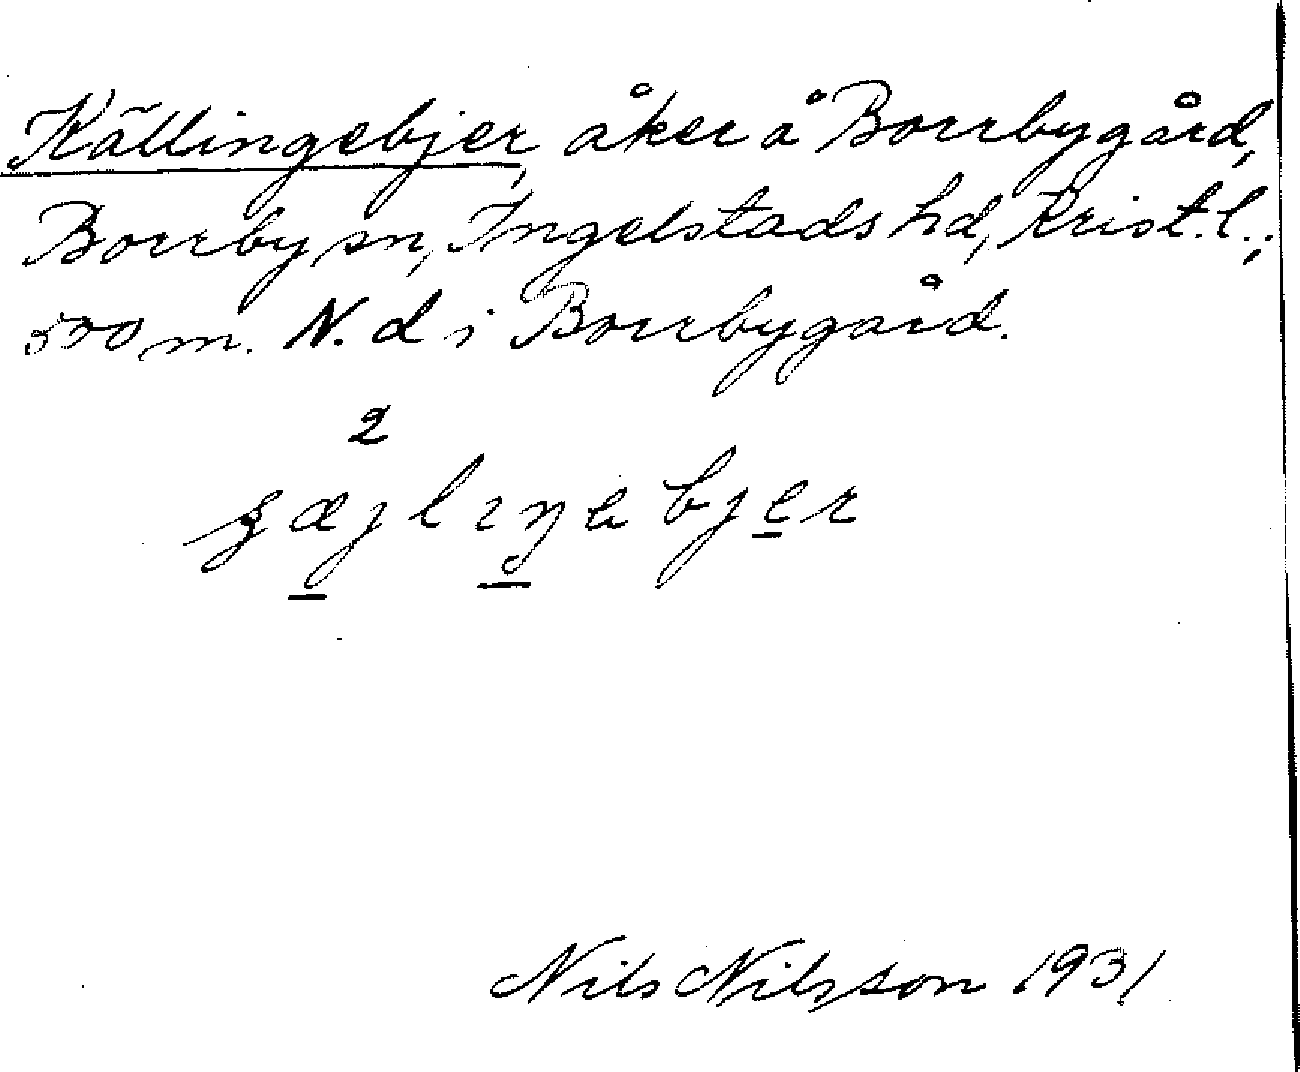 Källingebjer, åker å Borrbygård,
Borrby sn, Ingelstads hd, Krist. l.;
500 m. N. d i Borrbygård.
2
Nils Nilsson 1931